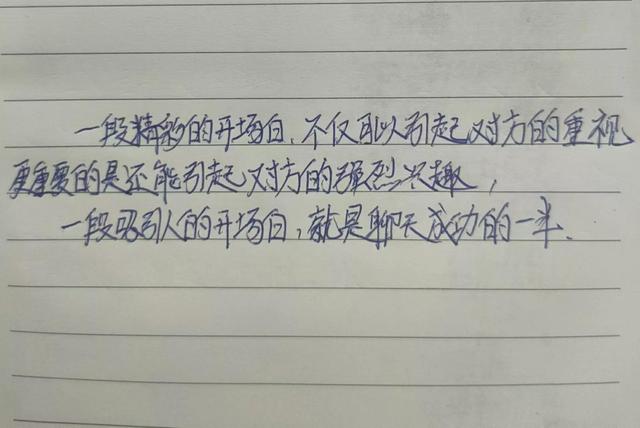 一段精彩的开场白,不仅可以引起对方的重视
更重要的是还能引起对方的强烈兴趣,
一段吸引人的开场白,就是聊天成功的一半.